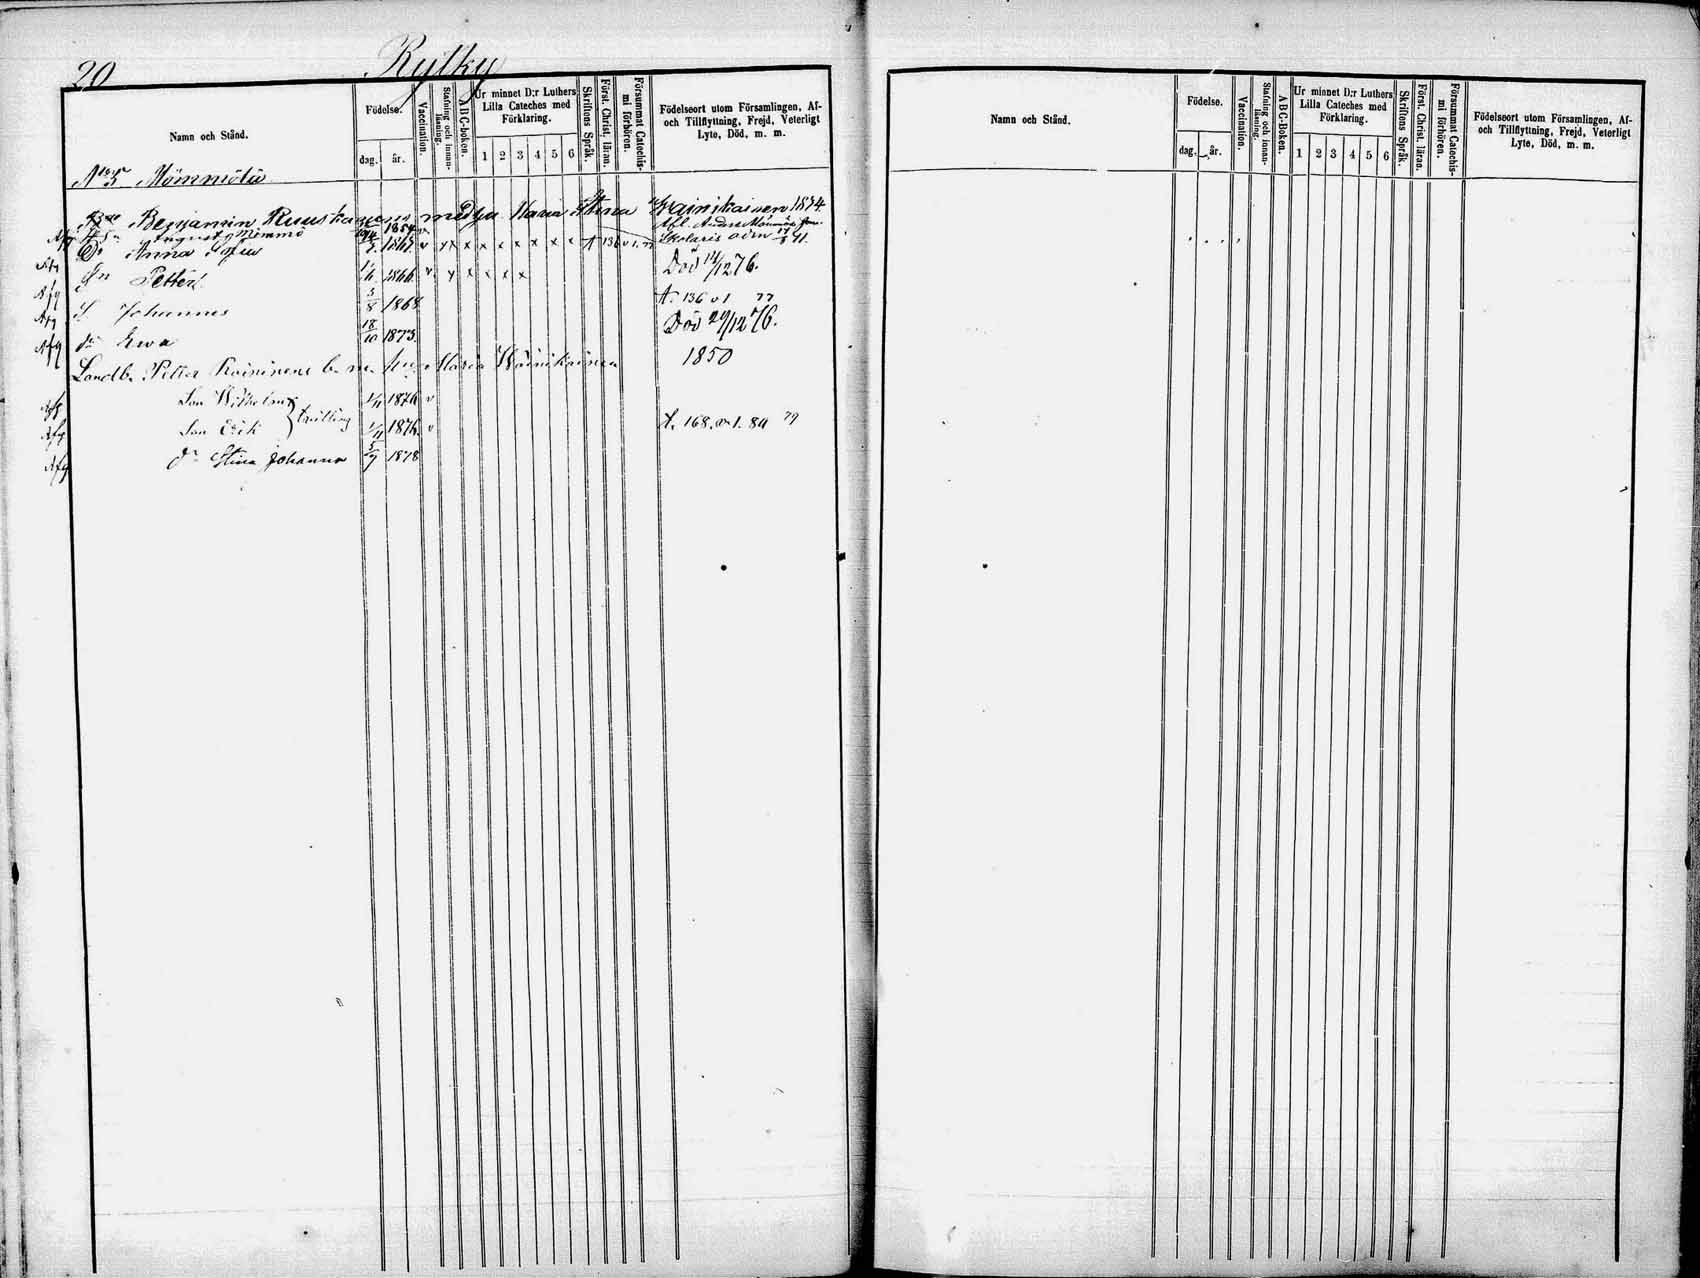 20 Rytky
Namn och Stånd.
Födelse.
dag. år.
Vaccination.
Stafning och innan-läsning.
ABC-boken.
Ur minnet D:r Luthers Lilla Cateches med Förklaring.
1 2 3 4 5 6
Skriftens Språk.
Först. Christ. läran.
Försummat Catechis-mi förhören.
Födelseort utom Församlingen, Af- och Tillflyttning, Frejd, Veterligt Lyte, Död, m. m.
No 5 Mömmölä
Benjamin Ruuskanens med Maria Stina Wainikainen 1834.
August Mömmö 1854
Do Anna Sofia 1865 v x x x x x x x x
Sn Petter 1866 v x x x x x Död 14/12 76.
S. Johannes 3/8 1868 136 v 1 77
Dr Ewa 18/10 1873 Död 29/12 76.
Landb. Petter Roininens b. m. hu. Maria Wäinikainen 1850
Son Wilhelm 1/11 1876 v
Son Erik } tvilling 1/11 1876 v 168. 1. 84 79
Dr Stina Johanna 5/7 1878
Namn och Stånd.
Födelse.
dag. år.
Vaccination.
Stafning och innan-läsning.
ABC-Boken.
Ur minnet D:r Luthers Lilla Cateches med Förklaring.
1 2 3 4 5 6
Skriftens Språk.
Först. Christ. läran.
Försummat Catechis-mi förhören.
Födelseort utom Församlingen, Af- och Tillflyttning, Frejd, Veterligt Lyte, Död, m. m.